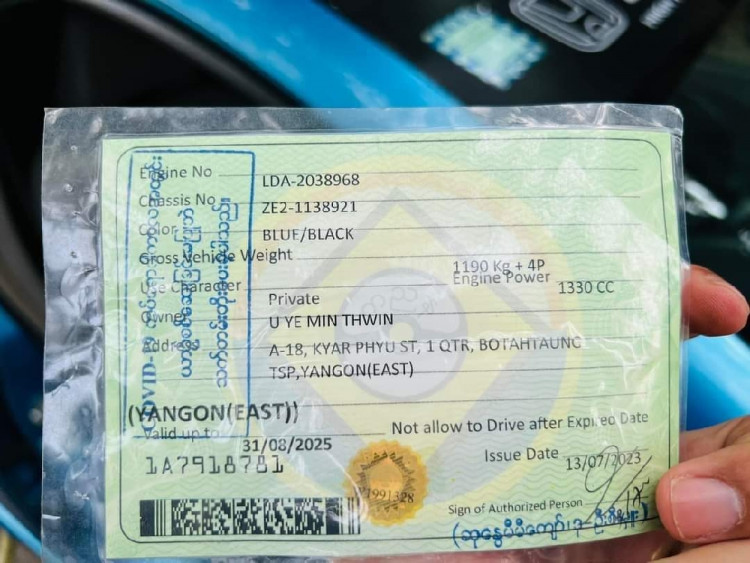 Engine No LDA-2038968
Chassis No ZE2-1138921
Color BLUE/BLACK
Gross Vehicle Weight 1190 Kg + 4P
Use Character Private Engine Power 1330 CC
Owner U YE MIN THWIN
Address A-18, KYAR PHYU ST, 1 QTR, BOTAHTAUNG
TSP,YANGON(EAST)
(YANGON(EAST))
Valid up to 31/08/2025 Not allow to Drive after Expired Date
1A7918781 Issue Date 13/07/2023
1991328
Sign of Authorized Person
COVID-19